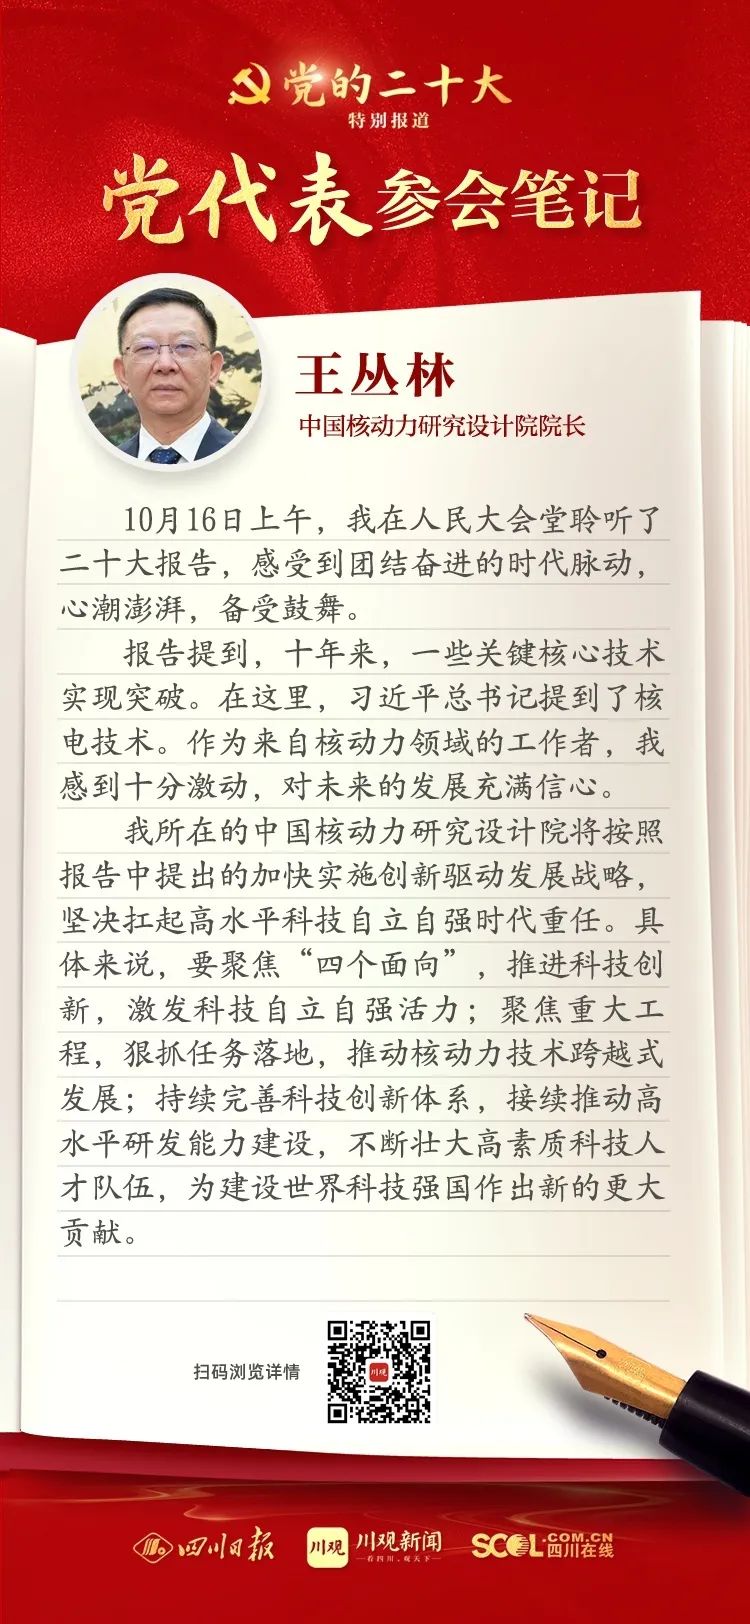 党的二十大
特别报道
党代表参会笔记
王丛林
中国核动力研究设计院院长
10月16日上午，我在人民大会堂聆听了
二十大报告，感受到团结奋进的时代脉动，
心潮澎湃，备受鼓舞。
报告提到，十年来，一些关键核心技术
实现突破。在这里，习近平总书记提到了核
电技术。作为来自核动力领域的工作者，我
感到十分激动，对未来的发展充满信心。
我所在的中国核动力研究设计院将按照
报告中提出的加快实施创新驱动发展战略，
坚决扛起高水平科技自立自强时代重任。具
体来说，要聚焦“四个面向”，推进科技创
新，激发科技自立自强活力；聚焦重大工
程，狠抓任务落地，推动核动力技术跨越式
发展；持续完善科技创新体系，接续推动高
水平研发能力建设，不断壮大高素质科技人
才队伍，为建设世界科技强国作出新的更大
贡献。
扫码浏览详情
川观
四川日报
川观
川观新闻
看四川，观天下
SCOL.COM.CN
四川在线